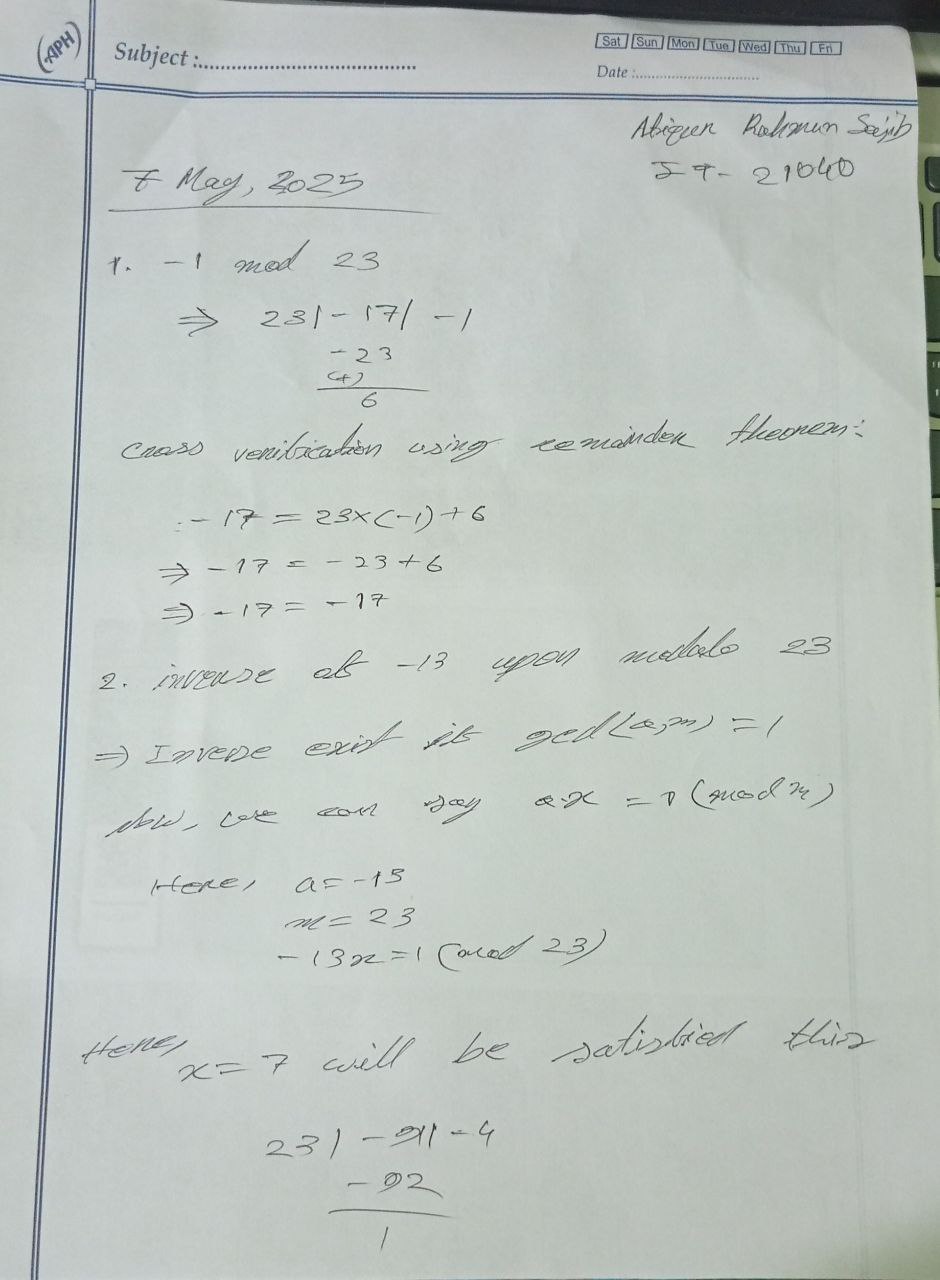 APH
Subject :
Sat Sun Mon Tue Wed Thu Fri
Date :
Rahman Sajib
IT- 21040
7 May, 2025
1. -1 mod 23
⇒ 23 | -17 | -1
-23
(+)
6
Cross verification using remainder theorem:
-17 = 23×(-1)+6
⇒ -17 = -23+6
⇒ -17 = -17
2. inverse of -13 upon modulo 23
⇒ Inverse exist if gcd(a,m) = 1
Now, we can say a·x = 1 (mod m)
Here, a = -13
m = 23
-13x = 1 (mod 23)
Here,
x = 7 will be satisfied this
23 | -91 | -4
-92
1